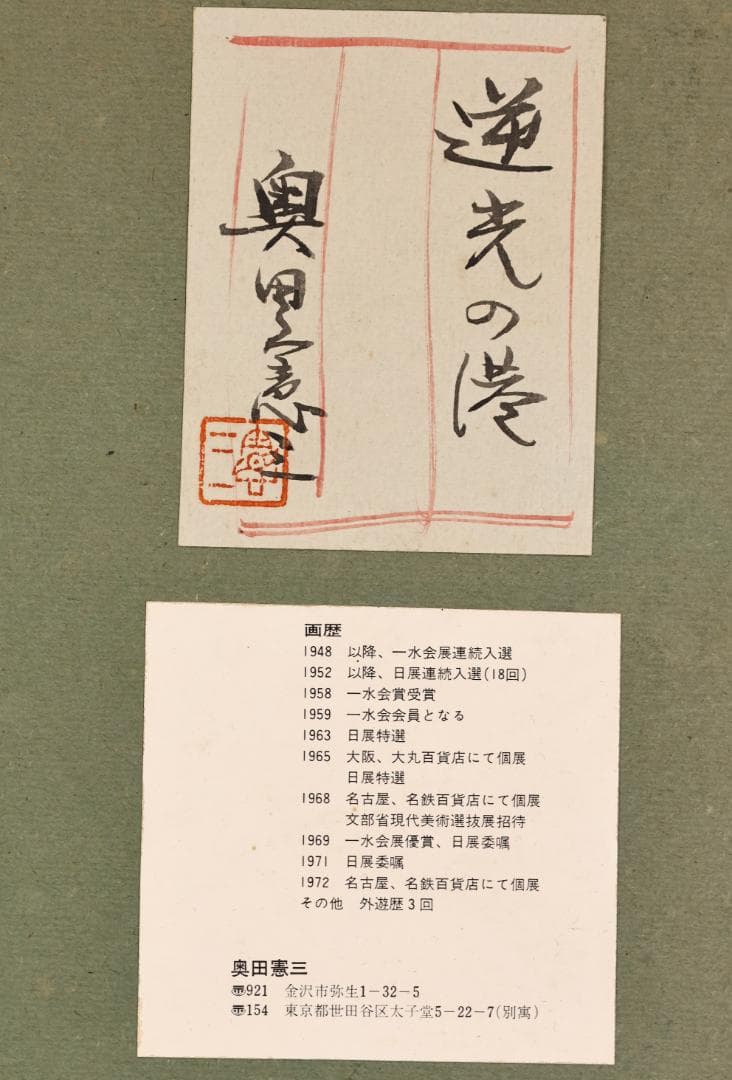 逆光の港
奥田憲三
画歴
1948 以降、一水会展連続入選
1952 以降、日展連続入選(18回)
1958 一水会賞受賞
1959 一水会会員となる
1963 日展特選
1965 大阪、大丸百貨店にて個展
日展特選
1968 名古屋、名鉄百貨店にて個展
文部省現代美術選抜展招待
1969 一水会展優賞、日展委嘱
1971 日展委嘱
1972 名古屋、名鉄百貨店にて個展
その他 外遊歴3回
奥田憲三
〠921 金沢市弥生1-32-5
〠154 東京都世田谷区太子堂5-22-7(別寓)